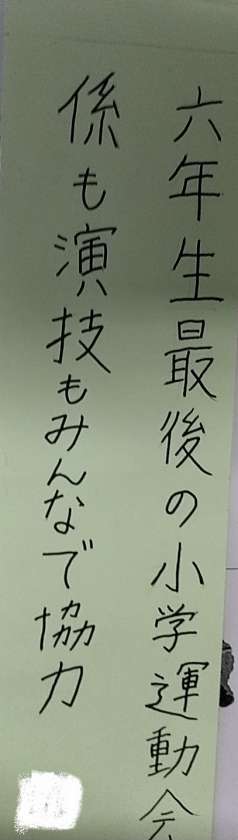 六年生最後の小学運動会
係も演技もみんなで協力